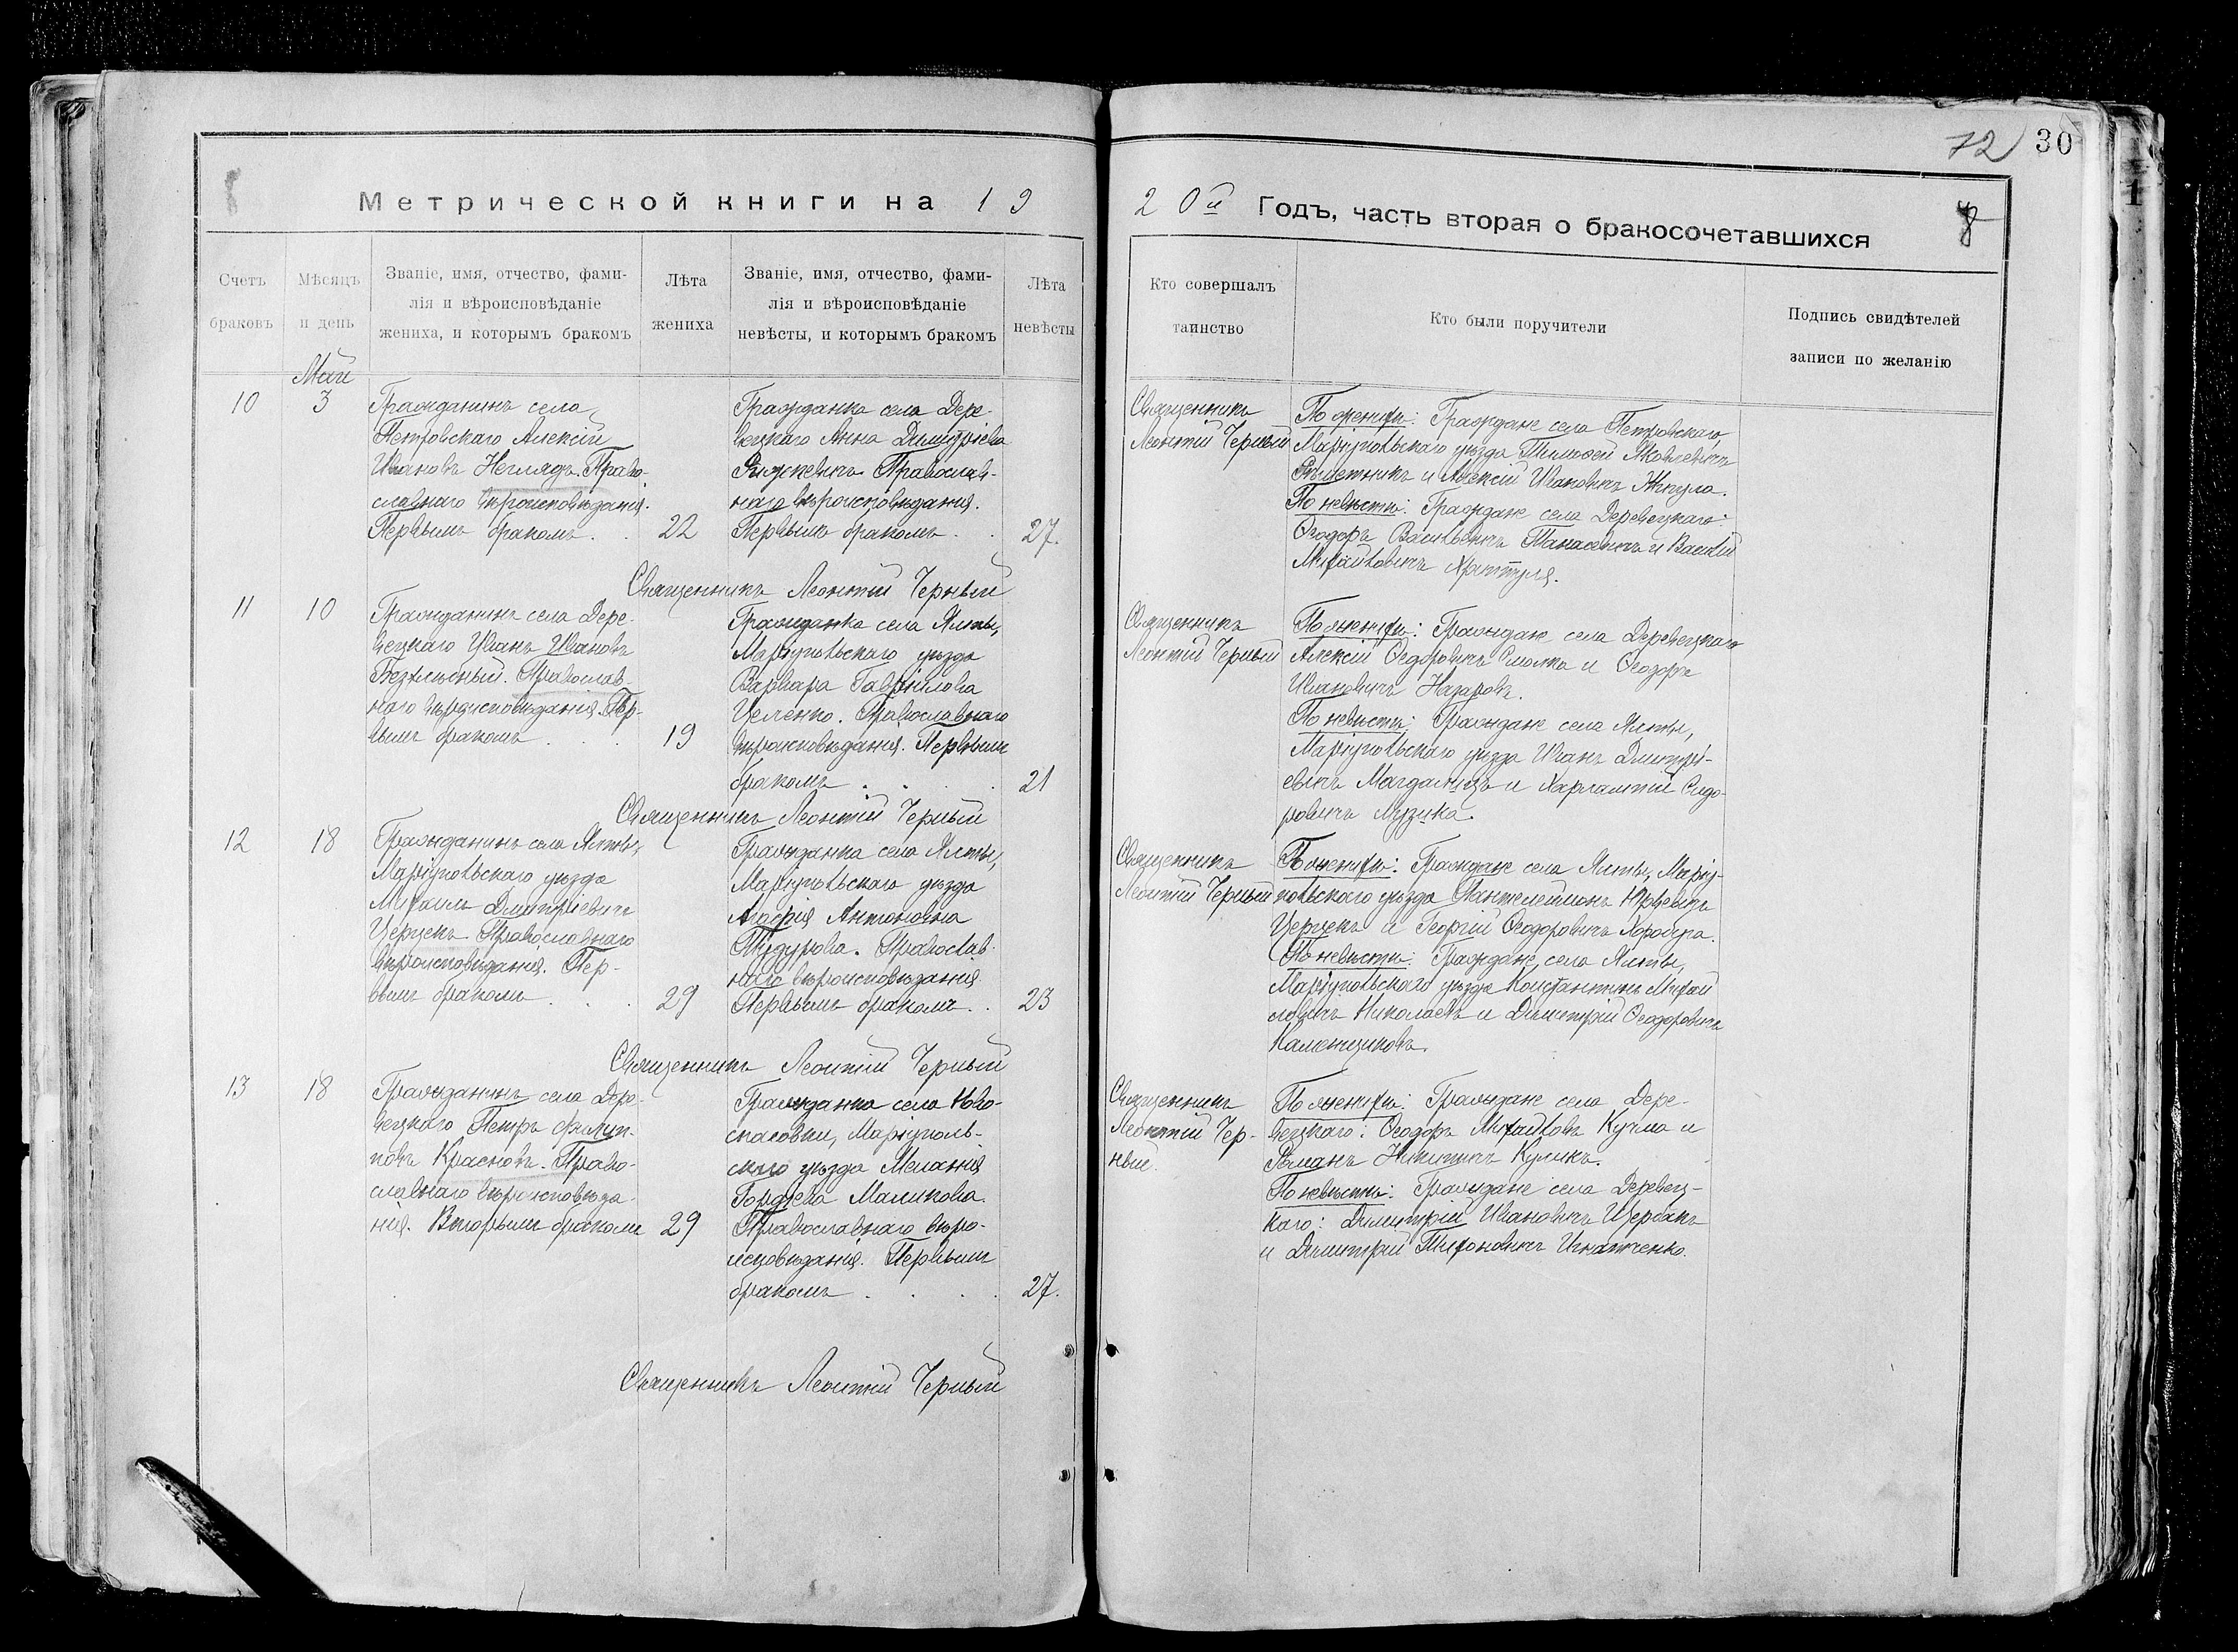 72 30
8
Метрической книги на 19
20й Годъ, часть вторая о бракосочетавшихся
8
Счетъ
браковъ
Мѣсяцъ
и день
Званіе, имя, отчество, фами-
лія и вѣроисповѣданіе
жениха, и которымъ бракомъ
Лѣта
жениха
Званіе, имя, отчество, фами-
лія и вѣроисповѣданіе
невѣсты, и которымъ бракомъ
Лѣта
невѣсты
Кто совершалъ
таинство
Кто были поручители
Подпись свидѣтелей
записи по желанію
Май
10
3
Гражданинъ села
Петровскаго Алексій
Ивановъ Неглядъ. Право-
славнаго вѣроисповѣданія.
Первымъ бракомъ . .
22
Гражданка села Дере-
вецкаго Анна Димитріева
Православ-
наго вѣроисповѣданія.
Первымъ бракомъ . .
27.
Священникъ
Леонтій Черный
По женихѣ: Граждане села Петровскаго,
Маріупольскаго уѣзда Тимофей Яковлевичъ
и Алексій Ивановичъ
По невѣстѣ: Граждане села Деревецкаго:
Ѳеодоръ Васильевичъ Танасевичъ и Василій
Михайловичъ
Священникъ Леонтій Черный
11
10
Гражданинъ села Дере-
вецкаго Иванъ Ивановъ
Православ-
наго вѣроисповѣданія. Пер-
вымъ бракомъ . . .
19
Гражданка села Ялты,
Маріупольскаго уѣзда
Варвара Гавріилова
Целенко. Православнаго
вѣроисповѣданія. Первымъ
бракомъ . . . .
21
Священникъ
Леонтій Черный
По женихѣ: Граждане села Деревецкаго
Алексій Ѳедоровичъ Смолка и Ѳеодоръ
Ивановичъ Назаровъ.
По невѣстѣ: Граждане села Ялты,
Маріупольскаго уѣзда Иванъ Дмитрі-
евичъ и Харлампій Сидо-
ровичъ Музыка.
Священникъ Леонтій Черный
12
18
Гражданинъ села Ялты,
Маріупольскаго уѣзда
Михаилъ Дмитріевичъ
Церцекъ. Православнаго
вѣроисповѣданія. Пер-
вымъ бракомъ . . .
29
Гражданка села Ялты,
Маріупольскаго уѣзда
Антоновна
Православ-
наго вѣроисповѣданія
Первымъ бракомъ . .
23
Священникъ
Леонтій Черный
По женихѣ: Граждане села Ялты, Маріу-
польскаго уѣзда Пантелеймонъ Юрьевичъ
Церцекъ и Георгій Ѳеодоровичъ
По невѣстѣ: Граждане села Ялты,
Маріупольскаго уѣзда Константинъ Михай-
ловичъ Николаевъ и Димитрій Ѳеодоровичъ
Каменщиковъ.
Священникъ Леонтій Черный
13
18
Гражданинъ села Дере-
вецкаго Петръ Филип-
повъ Красновъ. Право-
славнаго вѣроисповѣда-
нія. Вторымъ бракомъ
29
Гражданка села Ново-
спасовки, Маріуполь-
скаго уѣзда Меланія
Гордѣева Маликова.
Православнаго вѣро-
исповѣданія. Первымъ
бракомъ . . . .
27.
Священникъ
Леонтій Чер-
ный.
По женихѣ: Граждане села Дере-
вецкаго: Ѳеодоръ Михайловъ Кучма и
Романъ Никитичъ Куликъ.
По невѣстѣ: Граждане села Деревец-
каго: Димитрій Ивановичъ Щербакъ
и Димитрій Тихоновичъ Игнатченко.
Священникъ Леонтій Черный